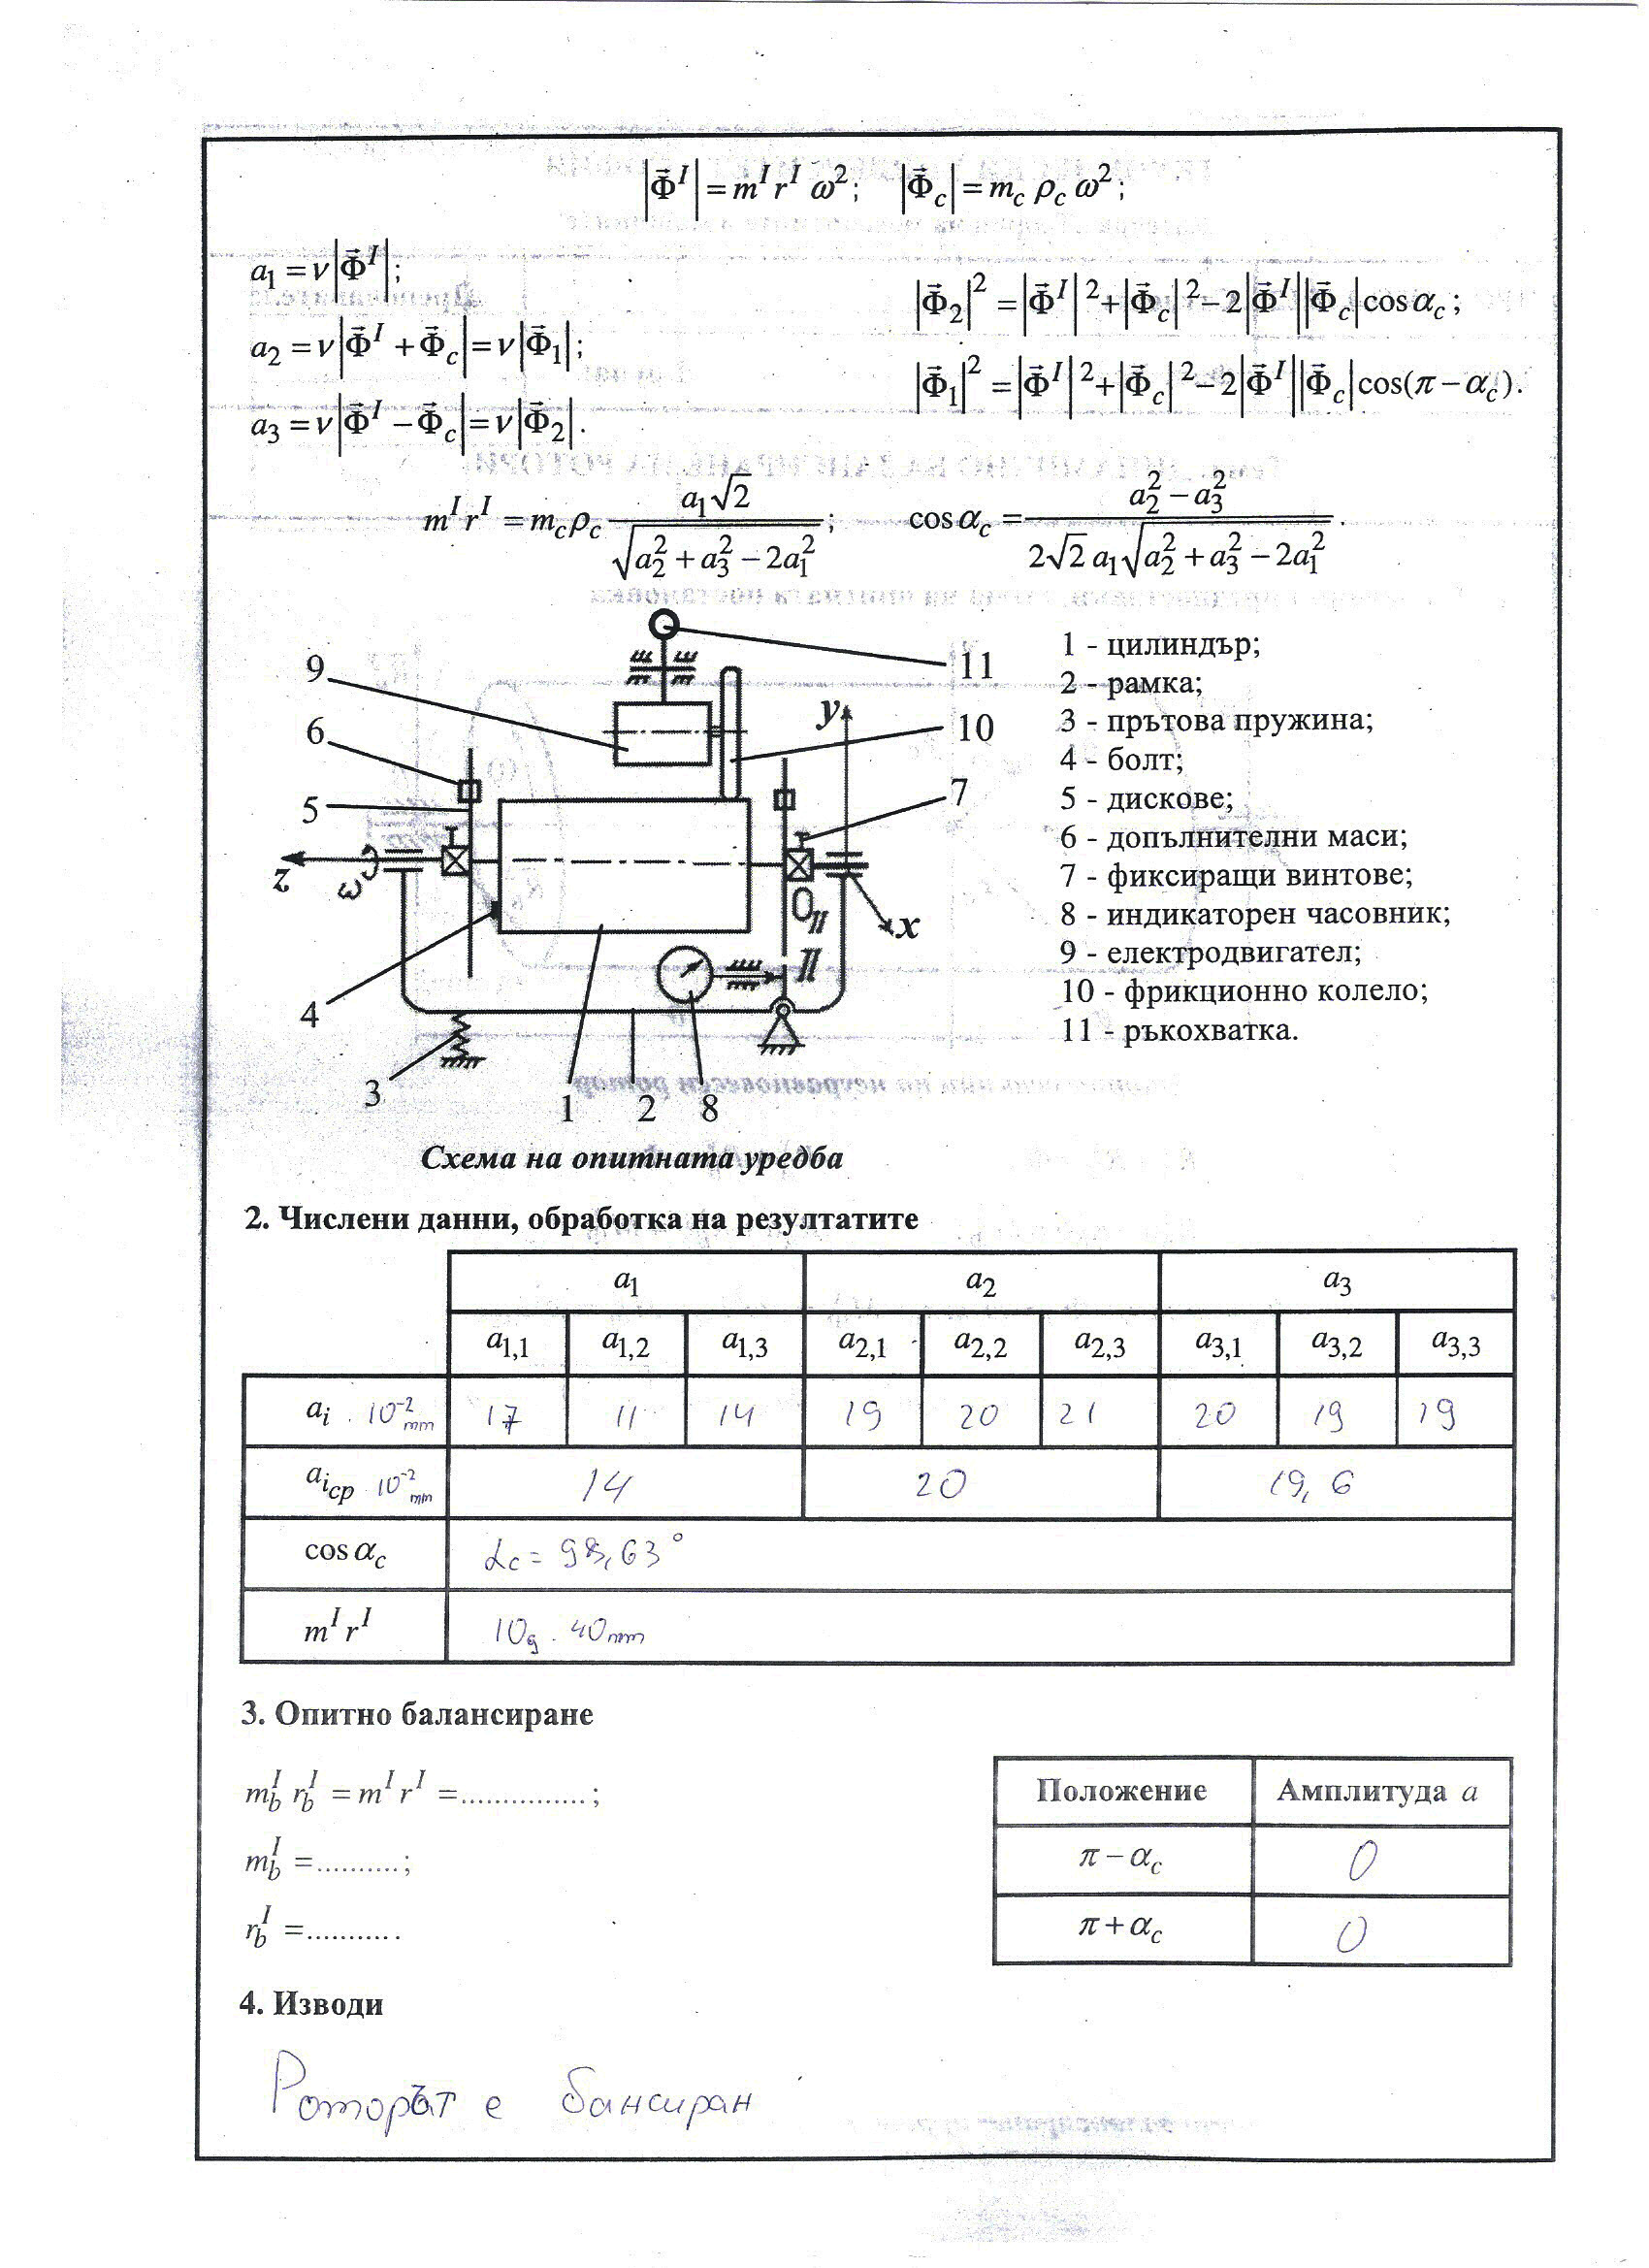 |Φ⃗ᴵ| = mᴵ rᴵ ω²; |Φ⃗_c| = m_c ρ_c ω²;
a₁ = ν|Φ⃗ᴵ|;
a₂ = ν|Φ⃗ᴵ + Φ⃗_c| = ν|Φ⃗₁|;
a₃ = ν|Φ⃗ᴵ − Φ⃗_c| = ν|Φ⃗₂|.
|Φ⃗₂|² = |Φ⃗ᴵ|² + |Φ⃗_c|² − 2|Φ⃗ᴵ||Φ⃗_c| cos α_c;
|Φ⃗₁|² = |Φ⃗ᴵ|² + |Φ⃗_c|² − 2|Φ⃗ᴵ||Φ⃗_c| cos(π − α_c).
mᴵ rᴵ = m_c ρ_c a₁√2 / √(a₂² + a₃² − 2a₁²); cos α_c = (a₂² − a₃²) / (2√2 a₁ √(a₂² + a₃² − 2a₁²)).
9
11
6
y
10
5
7
z
ω
O_II
x
II
4
3
1 2 8
1 - цилиндър;
2 - рамка;
3 - прътова пружина;
4 - болт;
5 - дискове;
6 - допълнителни маси;
7 - фиксиращи винтове;
8 - индикаторен часовник;
9 - електродвигател;
10 - фрикционно колело;
11 - ръкохватка.
Схема на опитната уредба
2. Числени данни, обработка на резултатите
a₁ a₂ a₃
a₁,₁ a₁,₂ a₁,₃ a₂,₁ a₂,₂ a₂,₃ a₃,₁ a₃,₂ a₃,₃
aᵢ . 10⁻² mm 17 11 14 19 20 21 20 19 19
aᵢ_ср . 10⁻² mm 14 20 19,6
cos α_c α_c = 98,63°
mᴵ rᴵ 10g . 40mm
3. Опитно балансиране
m_bᴵ r_bᴵ = mᴵ rᴵ = ...............;
m_bᴵ = ..........;
r_bᴵ = ...........
Положение Амплитуда a
π − α_c 0
π + α_c 0
4. Изводи
Роторът е бансиран